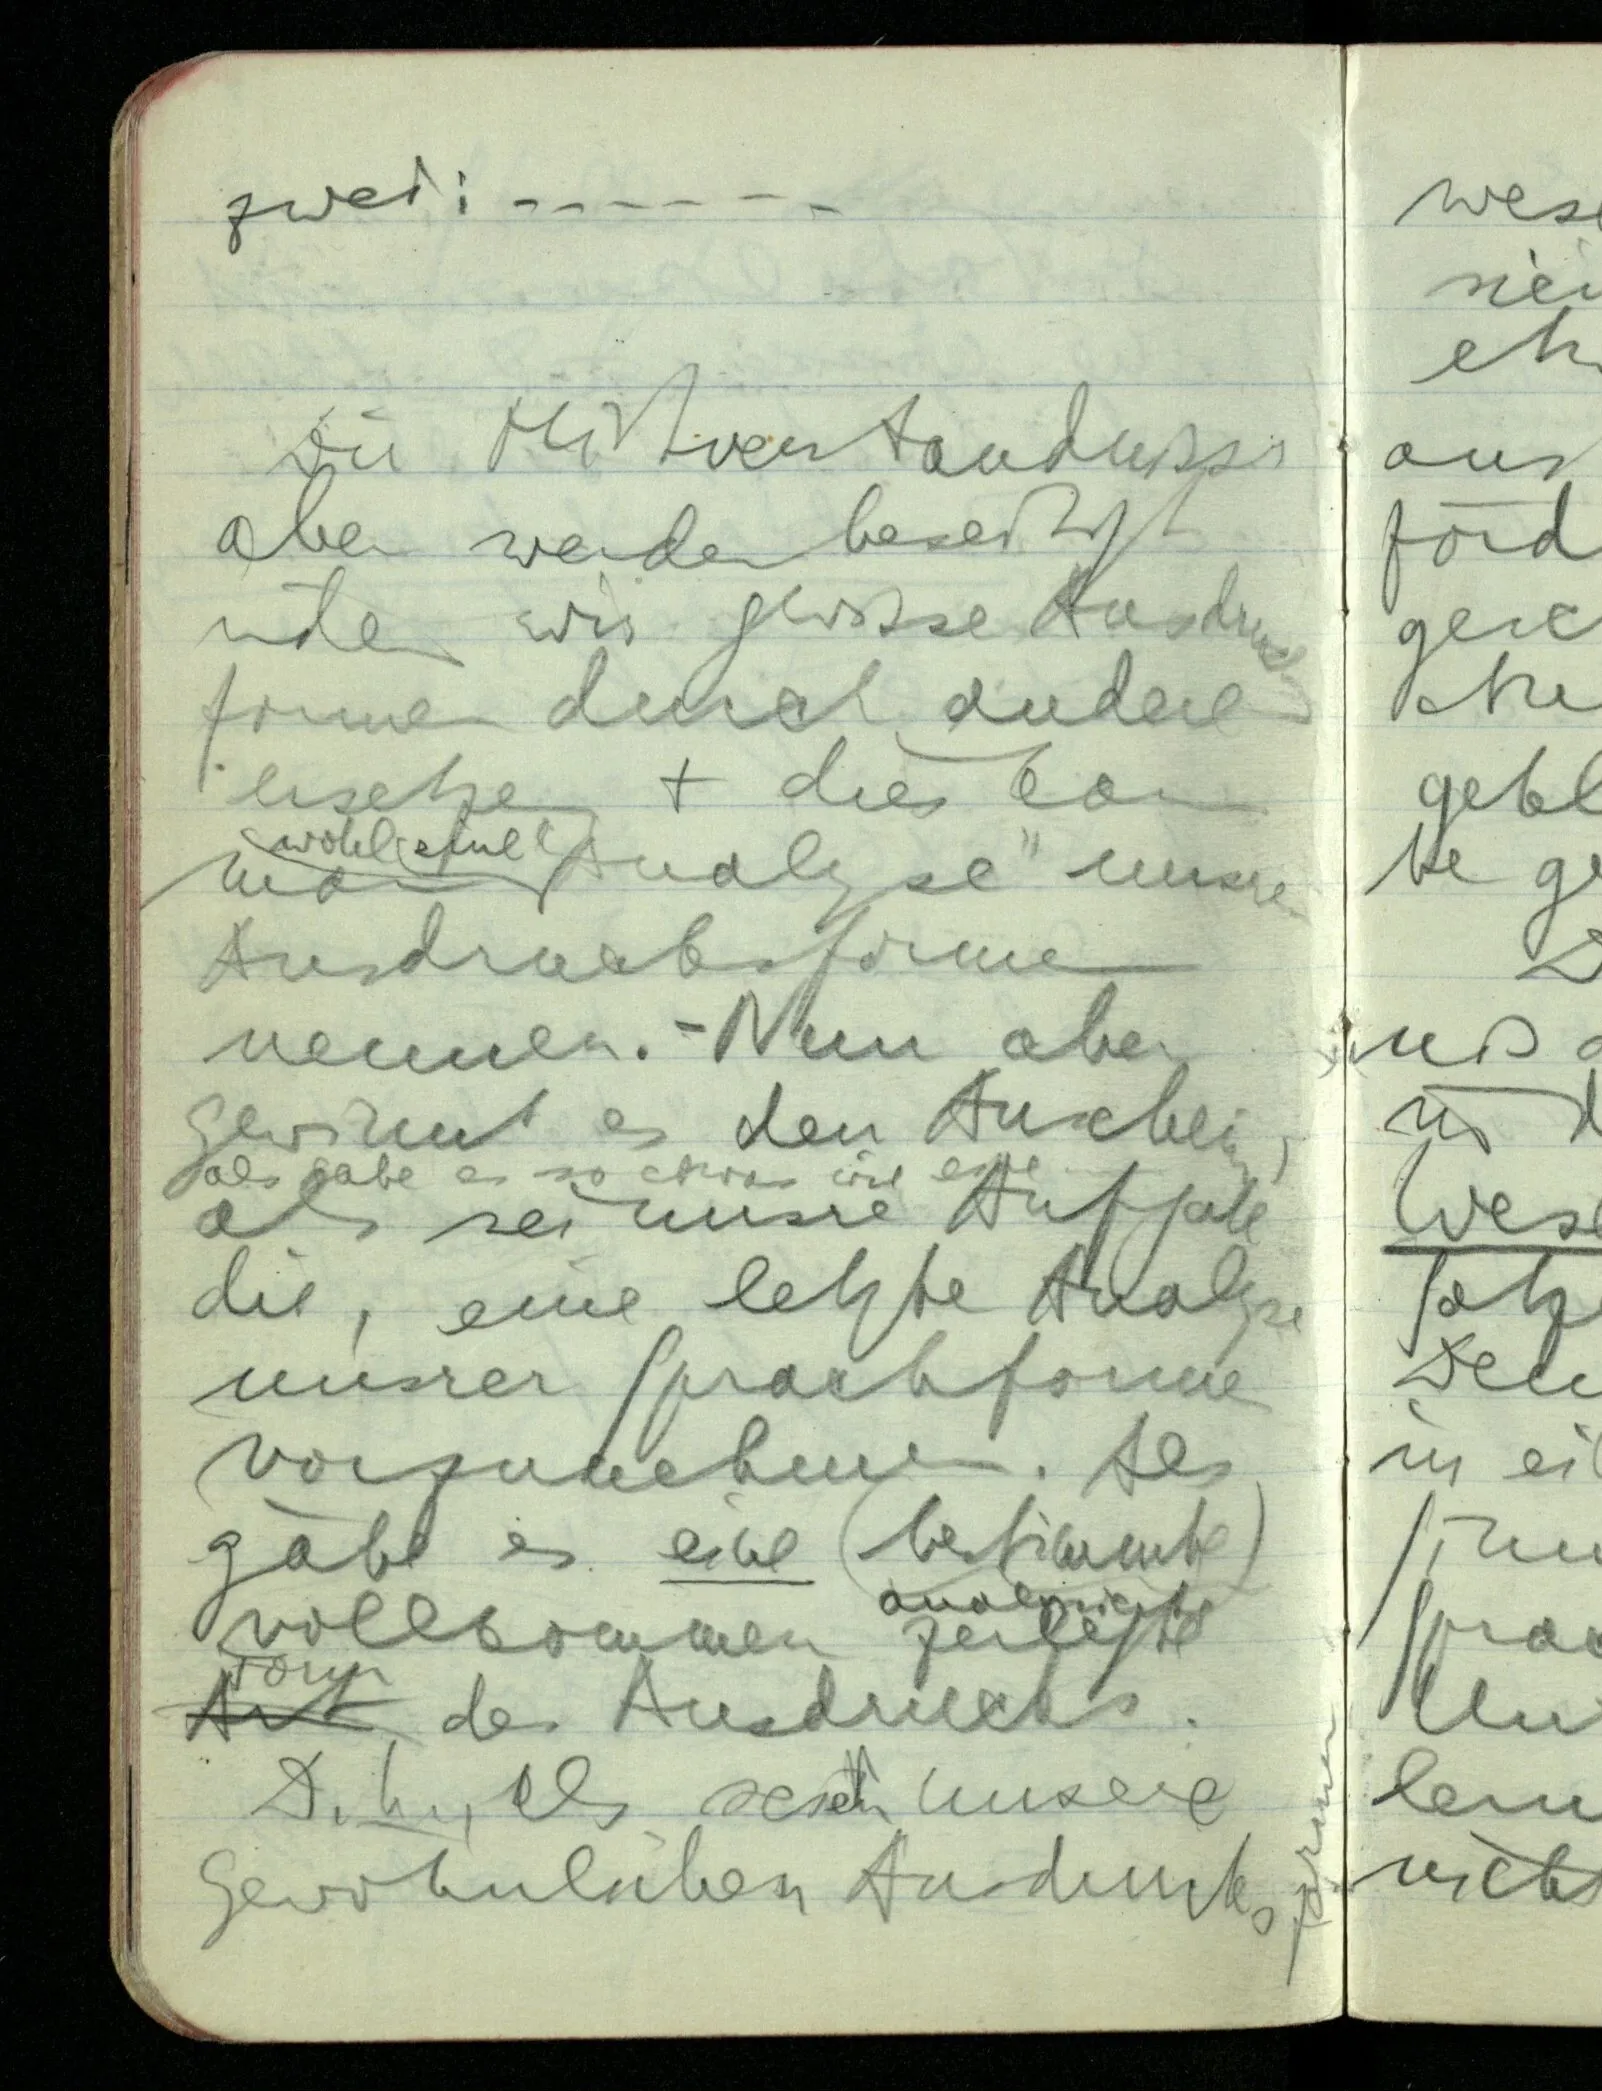 zwei: - - - - - -
Die Mißverständnisse
aber werden beseitigt
indem wir gewisse Ausdrucks
formen durch andere
ersetzen + dies kann
wohl eine
man "Analyse" unsrer
Ausdrucksformen
nennen. - Nun aber
gewinnt es den Anschein,
als gäbe es so etwas wie eine
als sei unsre Aufgabe
die, eine letzte Analyse
unsrer Sprachformen
vorzunehmen. Als
gäbe es eine (bestimmte)
analysierte
vollkommen zerlegte
Form
Art des Ausdrucks.
D.h., als seien unsere
gewöhnlichen Ausdrucks
formen
wese
ein
aus
förd
gebl
te ge
nis
in d
Wese
Den
in ei
lem
nicht